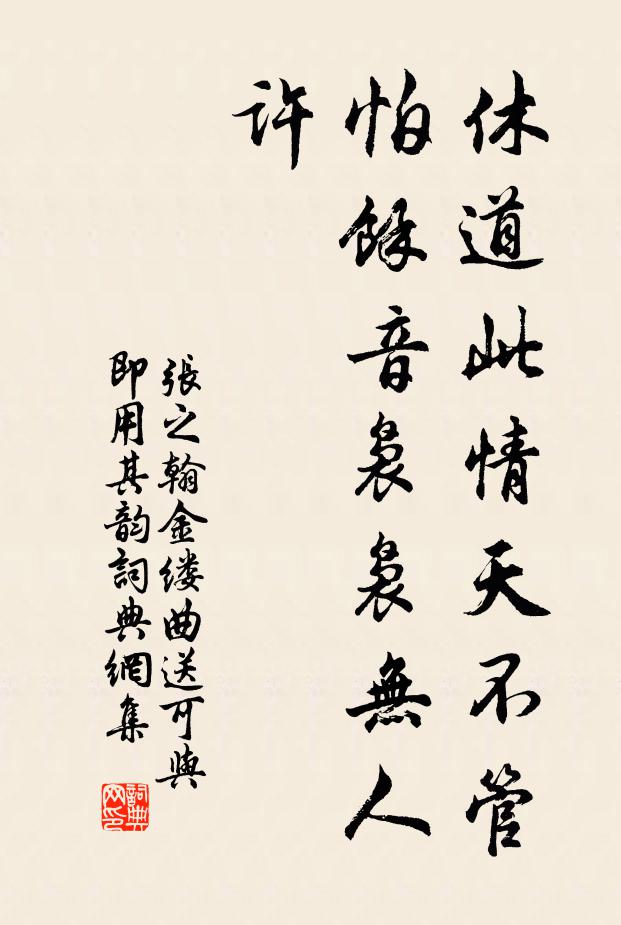 休道此情天不管
怕餘音裊裊無人
許
張之翰金缕曲送可與
即用其韵詞典網集
詞典网印